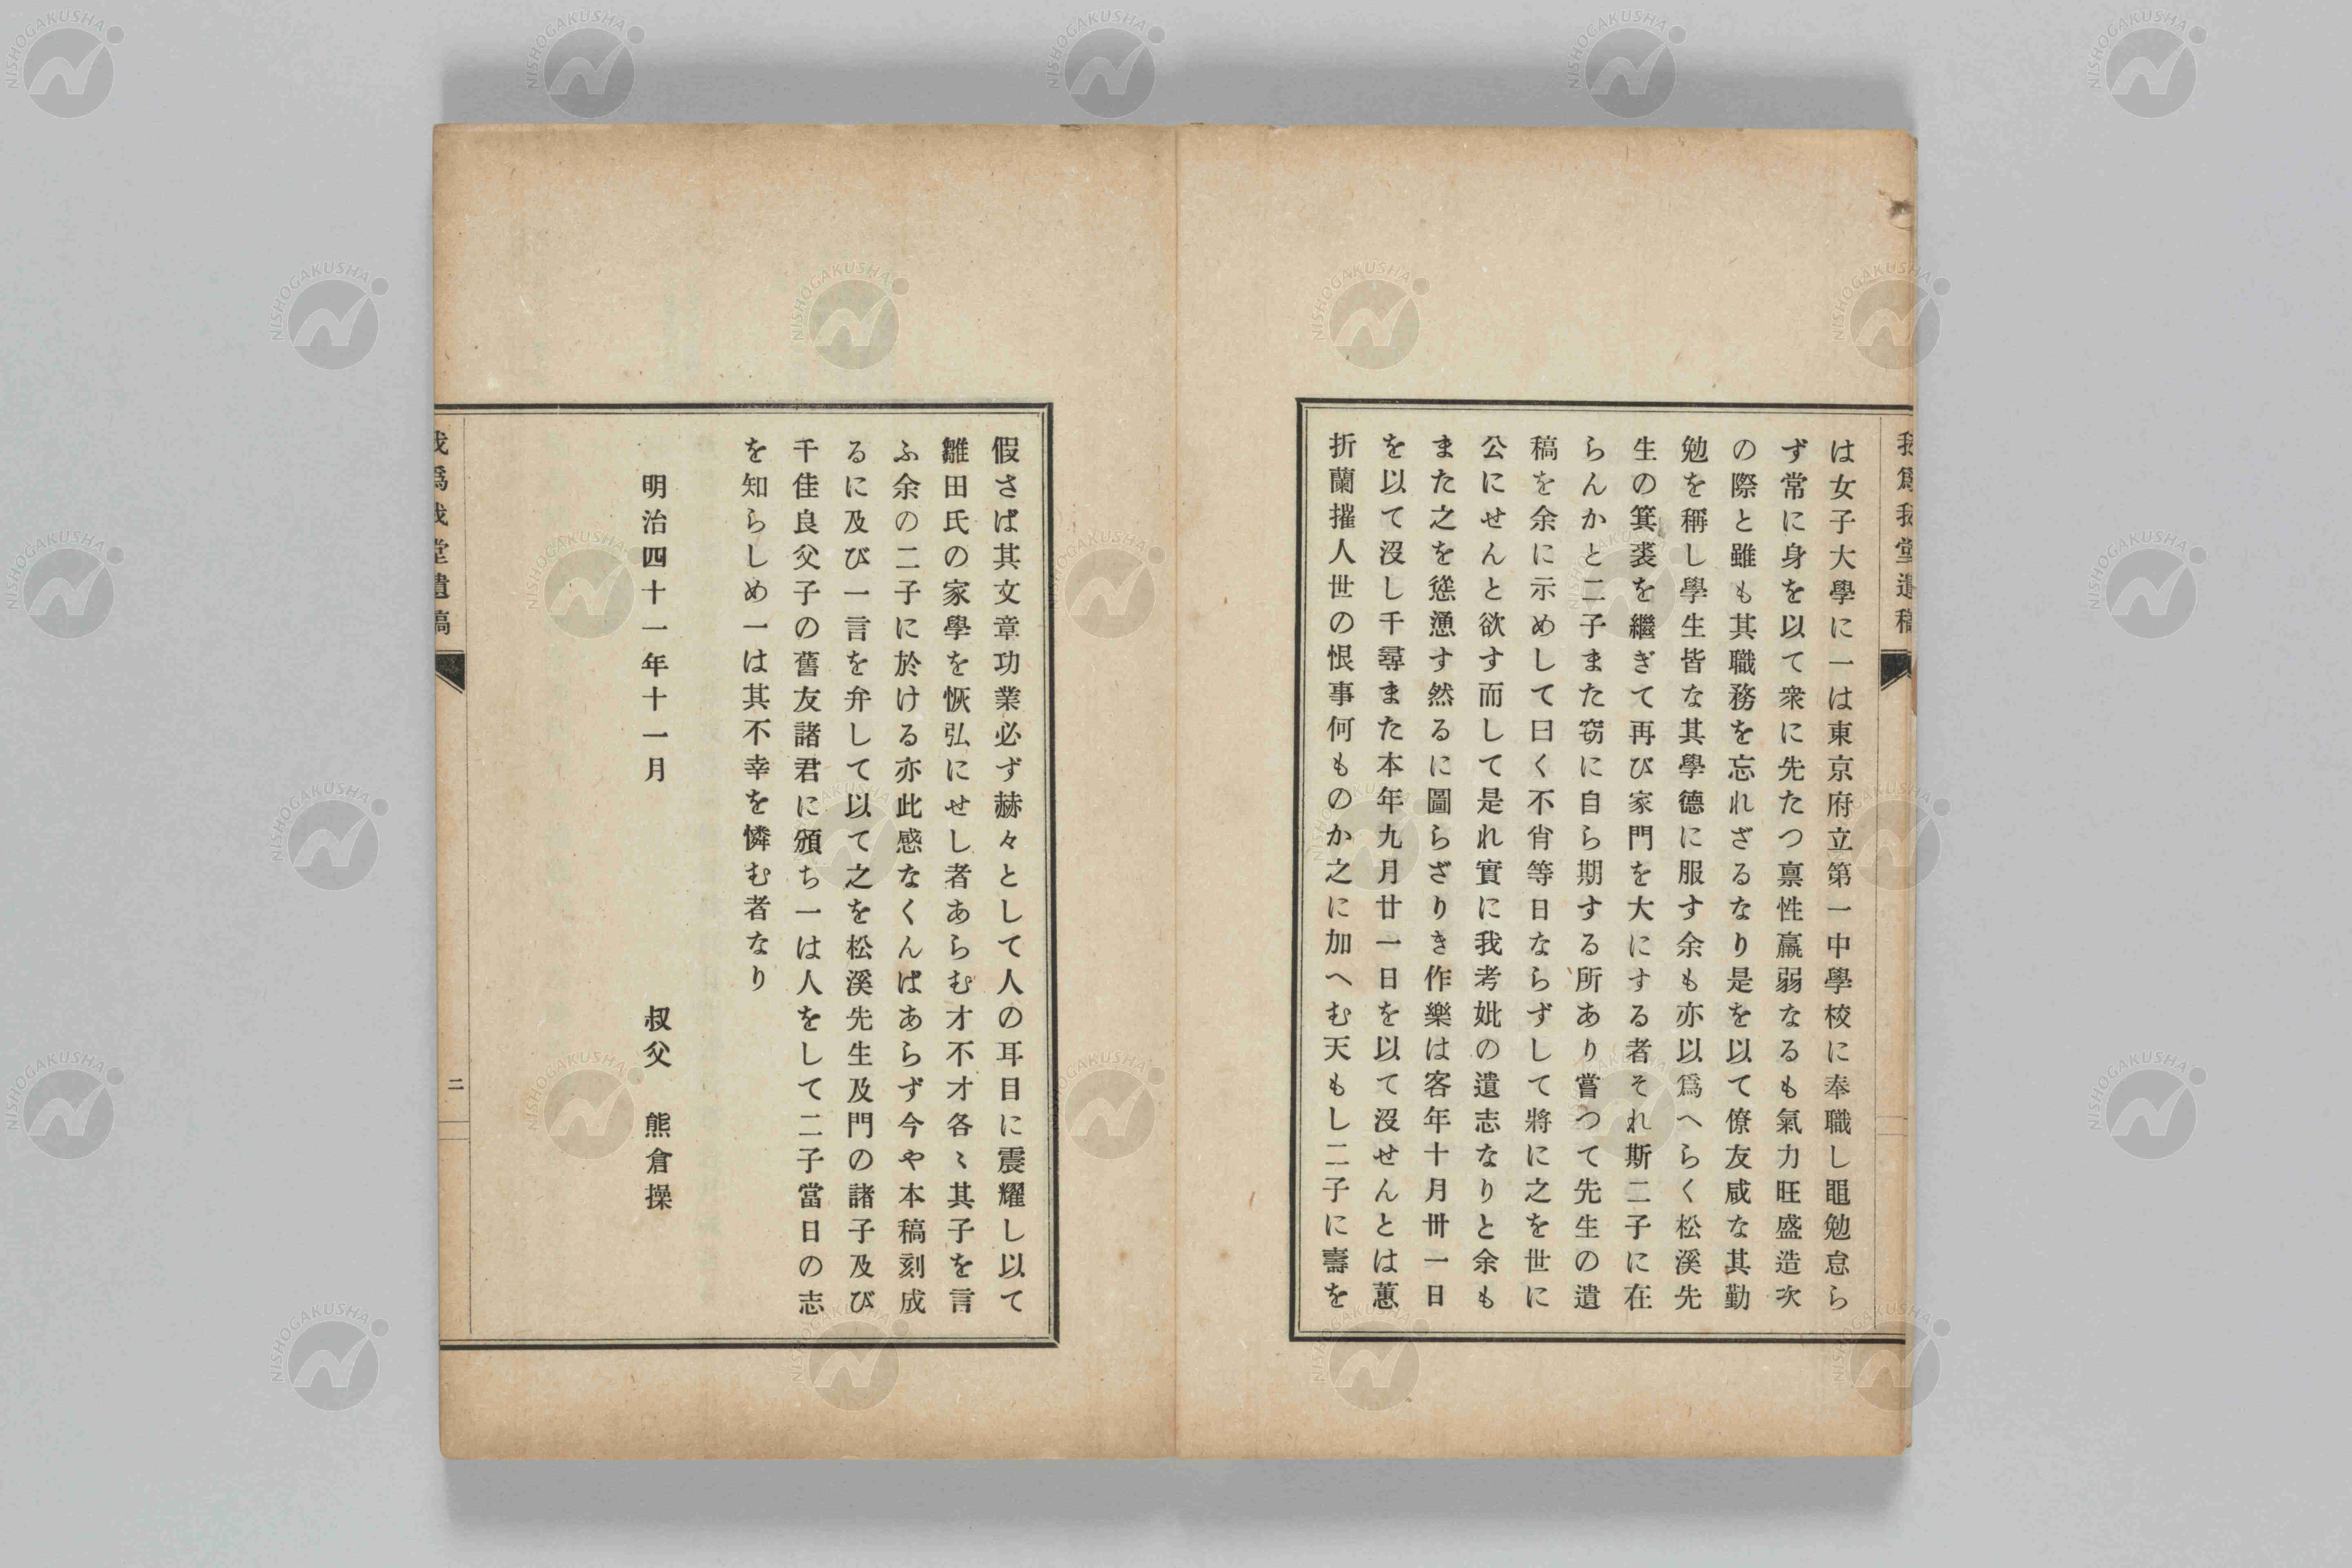 我爲我堂遺稿
は女子大學に一は東京府立第一中學校に奉職し黽勉怠ら
ず常に身を以て衆に先たつ禀性羸弱なるも氣力旺盛造次
の際と雖も其職務を忘れざるなり是を以て僚友咸な其勤
勉を稱し學生皆な其學德に服す余も亦以爲へらく松溪先
生の箕裘を繼ぎて再び家門を大にする者それ斯二子に在
らんかと二子また窃に自ら期する所あり嘗つて先生の遺
稿を余に示めして曰く不肖等日ならずして將に之を世に
公にせんと欲す而して是れ實に我考妣の遺志なりと余も
また之を慫慂す然るに圖らざりき作樂は客年十月卅一日
を以て沒し千尋また本年九月廿一日を以て沒せんとは蕙
折蘭摧人世の恨事何ものか之に加へむ天もし二子に壽を
假さば其文章功業必ず赫々として人の耳目に震耀し以て
雛田氏の家學を恢弘にせし者あらむ才不才各〻其子を言
ふ余の二子に於ける亦此感なくんばあらず今や本稿刻成
るに及び一言を弁して以て之を松溪先生及門の諸子及び
千佳良父子の舊友諸君に頒ち一は人をして二子當日の志
を知らしめ一は其不幸を憐む者なり
明治四十一年十一月
叔父 熊倉操
我爲我堂遺稿
二
NISHOGAKUSHA